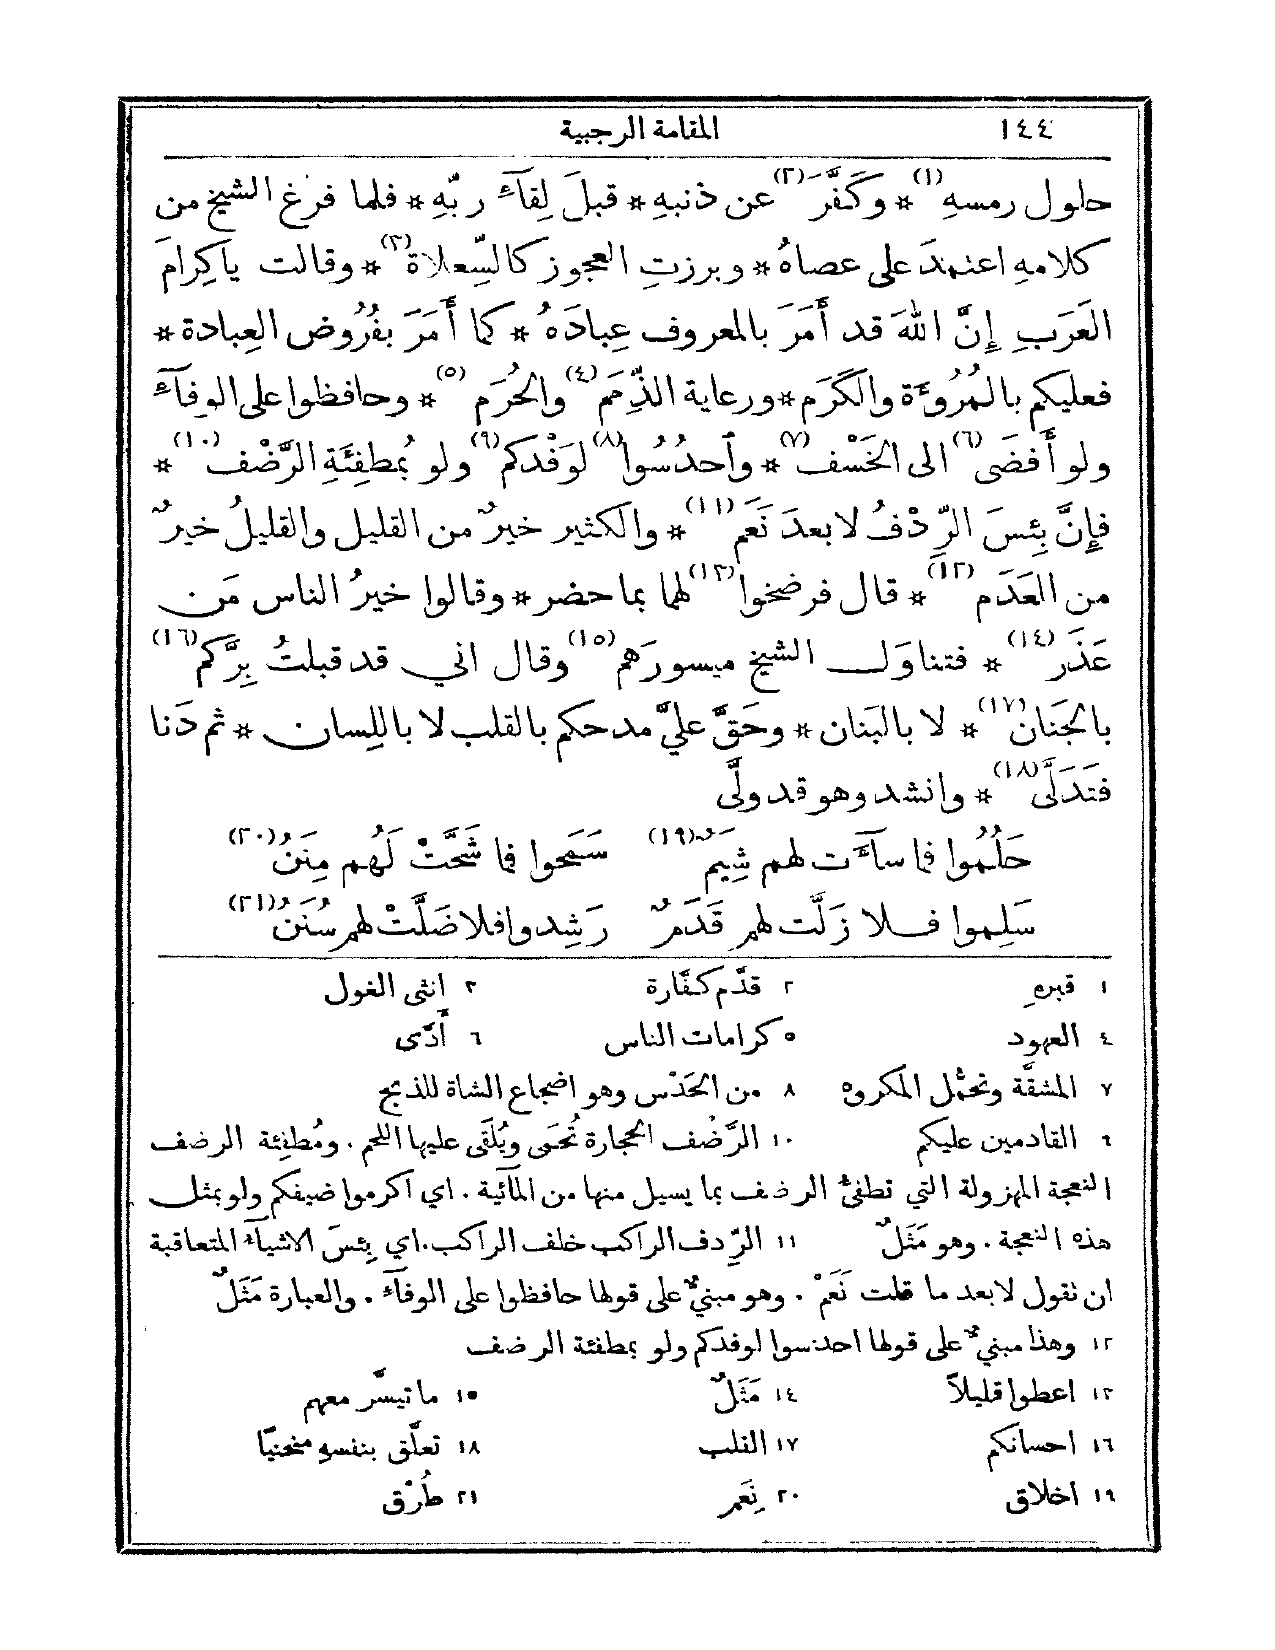 ١٤٤ المقامة الرجبية
حلول رمسهِ(١) * وكَفَّرَ(٢) عن ذنبهِ * قبلَ لِقآءَ ربّهِ * فلما فرغ الشيخ من
كلامهِ اعتمدَ على عصاهُ * وبرزتِ العجوز كالسِّعلاة(٣) * وقالت ياكِرامَ
العَرَبِ إِنَّ اللهَ قد أَمَرَ بالمعروف عِبادَهُ * كما أَمَرَ بفُرُوض العِبادة *
فعليكم بالمُرُوءَة والكَرَم * ورعاية الذِّمَم(٤) والحُرُم(٥) * وحافظوا على الوفآءَ
ولو أَفضَى(٦) الى الخَسْف(٧) * وأحدُسُوا(٨) لوَفْدكم(٩) ولو بُمطفِئَةِ الرَّضْف(١٠) *
فإِنَّ بِئسَ الرِّدْفُ لا بعدَ نَعَم(١١) * والكثير خيرٌ من القليل والقليلُ خيرٌ
من العَدَم(١٢) * قال فرضخوا(١٣) لهما بما حضر * وقالوا خيرُ الناس مَن
عَذَر(١٤) * فتناوَل الشيخ ميسورَهم(١٥) وقال اني قد قبلتُ بِرَّكم(١٦)
بالجَنان(١٧) * لا بالبَنان * وحَقَّ عليَّ مدحكم بالقلب لا باللِسان * ثم دَنا
فتَدَلَّى(١٨) * وانشد وهو قد ولَّى
حَلُمُوا فما سآءَت لهم شِيَمٌ(١٩) سَمَحوا فما شَحَّتْ لَهُم مِنَنُ(٢٠)
سَلِموا فلا زَلَّت لهم قَدَمٌ رَشِدوا فلا ضَلَّتْ لهم سُنَنُ(٢١)
١ قبرهِ ٢ قدَّم كفَّارة ٣ انثى الغول
٤ العهود ٥ كرامات الناس ٦ أَدَّى
٧ المشقَّة وتحمُّل المكروه ٨ من الحَدْس وهو اضجاع الشاة للذبح
٩ القادمين عليكم ١٠ الرَّضْف الحجارة تُحمَى ويُلقَى عليها اللحم. ومُطفِئة الرضف
النعجة المهزولة التي تطفئُ الرضف بما يسيل منها من المآئية. اي اكرموا ضيفكم ولو بمثل
هذه النعجة. وهو مَثَلٌ ١١ الرِّدف الراكب خلف الراكب. اي بِئسَ الاشيآءَ المتعاقبة
ان نقول لا بعد ما قلت نَعَمْ. وهو مبنيٌّ على قولها حافظوا على الوفآءَ. والعبارة مَثَلٌ
١٢ وهذا مبنيٌّ على قولها احدسوا لوفدكم ولو بمطفئة الرضف
١٣ اعطوا قليلاً ١٤ مَثَلٌ ١٥ ما تيسَّر معهم
١٦ احسانكم ١٧ القلب ١٨ تعلَّق بنفسهِ منحنيًا
١٩ اخلاق ٢٠ نِعَم ٢١ طُرُق